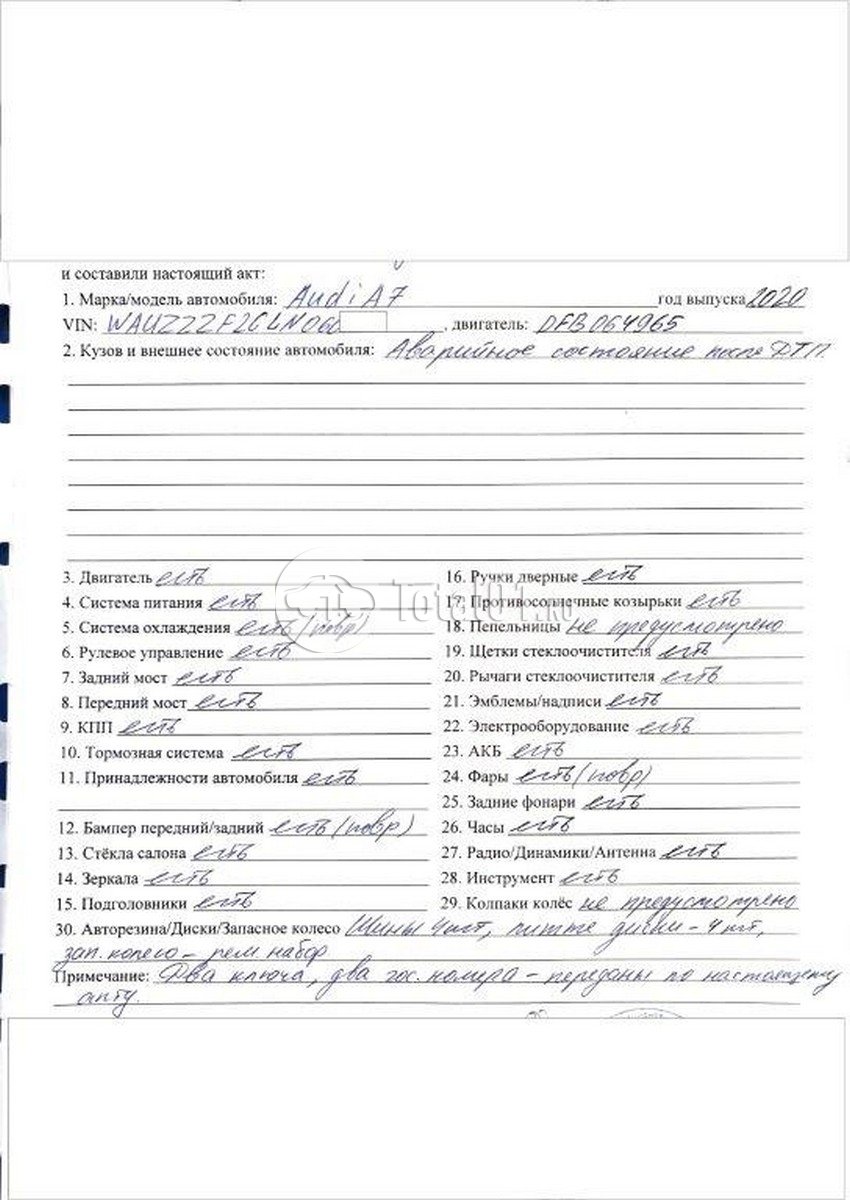 и составили настоящий акт:
1. Марка/модель автомобиля: Audi A7 год выпуска 2020
VIN: WAUZZZF2GLN060 , двигатель: DFB064965
2. Кузов и внешнее состояние автомобиля: Аварийное состояние после ДТП.
3. Двигатель есть
4. Система питания есть
5. Система охлаждения есть (повр)
6. Рулевое управление есть
7. Задний мост есть
8. Передний мост есть
9. КПП есть
10. Тормозная система есть
11. Принадлежности автомобиля есть
12. Бампер передний/задний есть (повр)
13. Стёкла салона есть
14. Зеркала есть
15. Подголовники есть
16. Ручки дверные есть
17. Противосолнечные козырьки есть
18. Пепельницы не предусмотрено
19. Щетки стеклоочистителя есть
20. Рычаги стеклоочистителя есть
21. Эмблемы/надписи есть
22. Электрооборудование есть
23. АКБ есть
24. Фары есть (повр)
25. Задние фонари есть
26. Часы есть
27. Радио/Динамики/Антенна есть
28. Инструмент есть
29. Колпаки колёс не предусмотрено
30. Авторезина/Диски/Запасное колесо Шины 4шт, литые диски - 4 шт,
зап. колесо - рем. набор
Примечание: Два ключа, два гос. номера - переданы по настоящему
акту.
Total01.RU